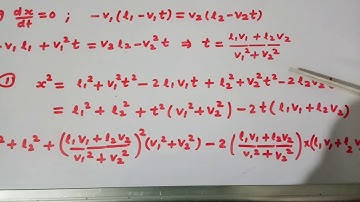 ) dx/dt = 0 ; - v₁(l₁ - v₁t) = v₂(l₂ - v₂t)
v₁l₁ + v₁²t = v₂l₂ - v₂²t ⇒ t = (l₁v₁ + l₂v₂)/(v₁² + v₂²)
① x² = l₁² + v₁²t² - 2l₁v₁t + l₂² + v₂²t² - 2l₂v₂t
= l₁² + l₂² + t²(v₁² + v₂²) - 2t(l₁v₁ + l₂v₂)
² + l₂² + ((l₁v₁ + l₂v₂)/(v₁² + v₂²))²(v₁² + v₂²) - 2((l₁v₁ + l₂v₂)/(v₁² + v₂²)) × (l₁v₁ + l₂v